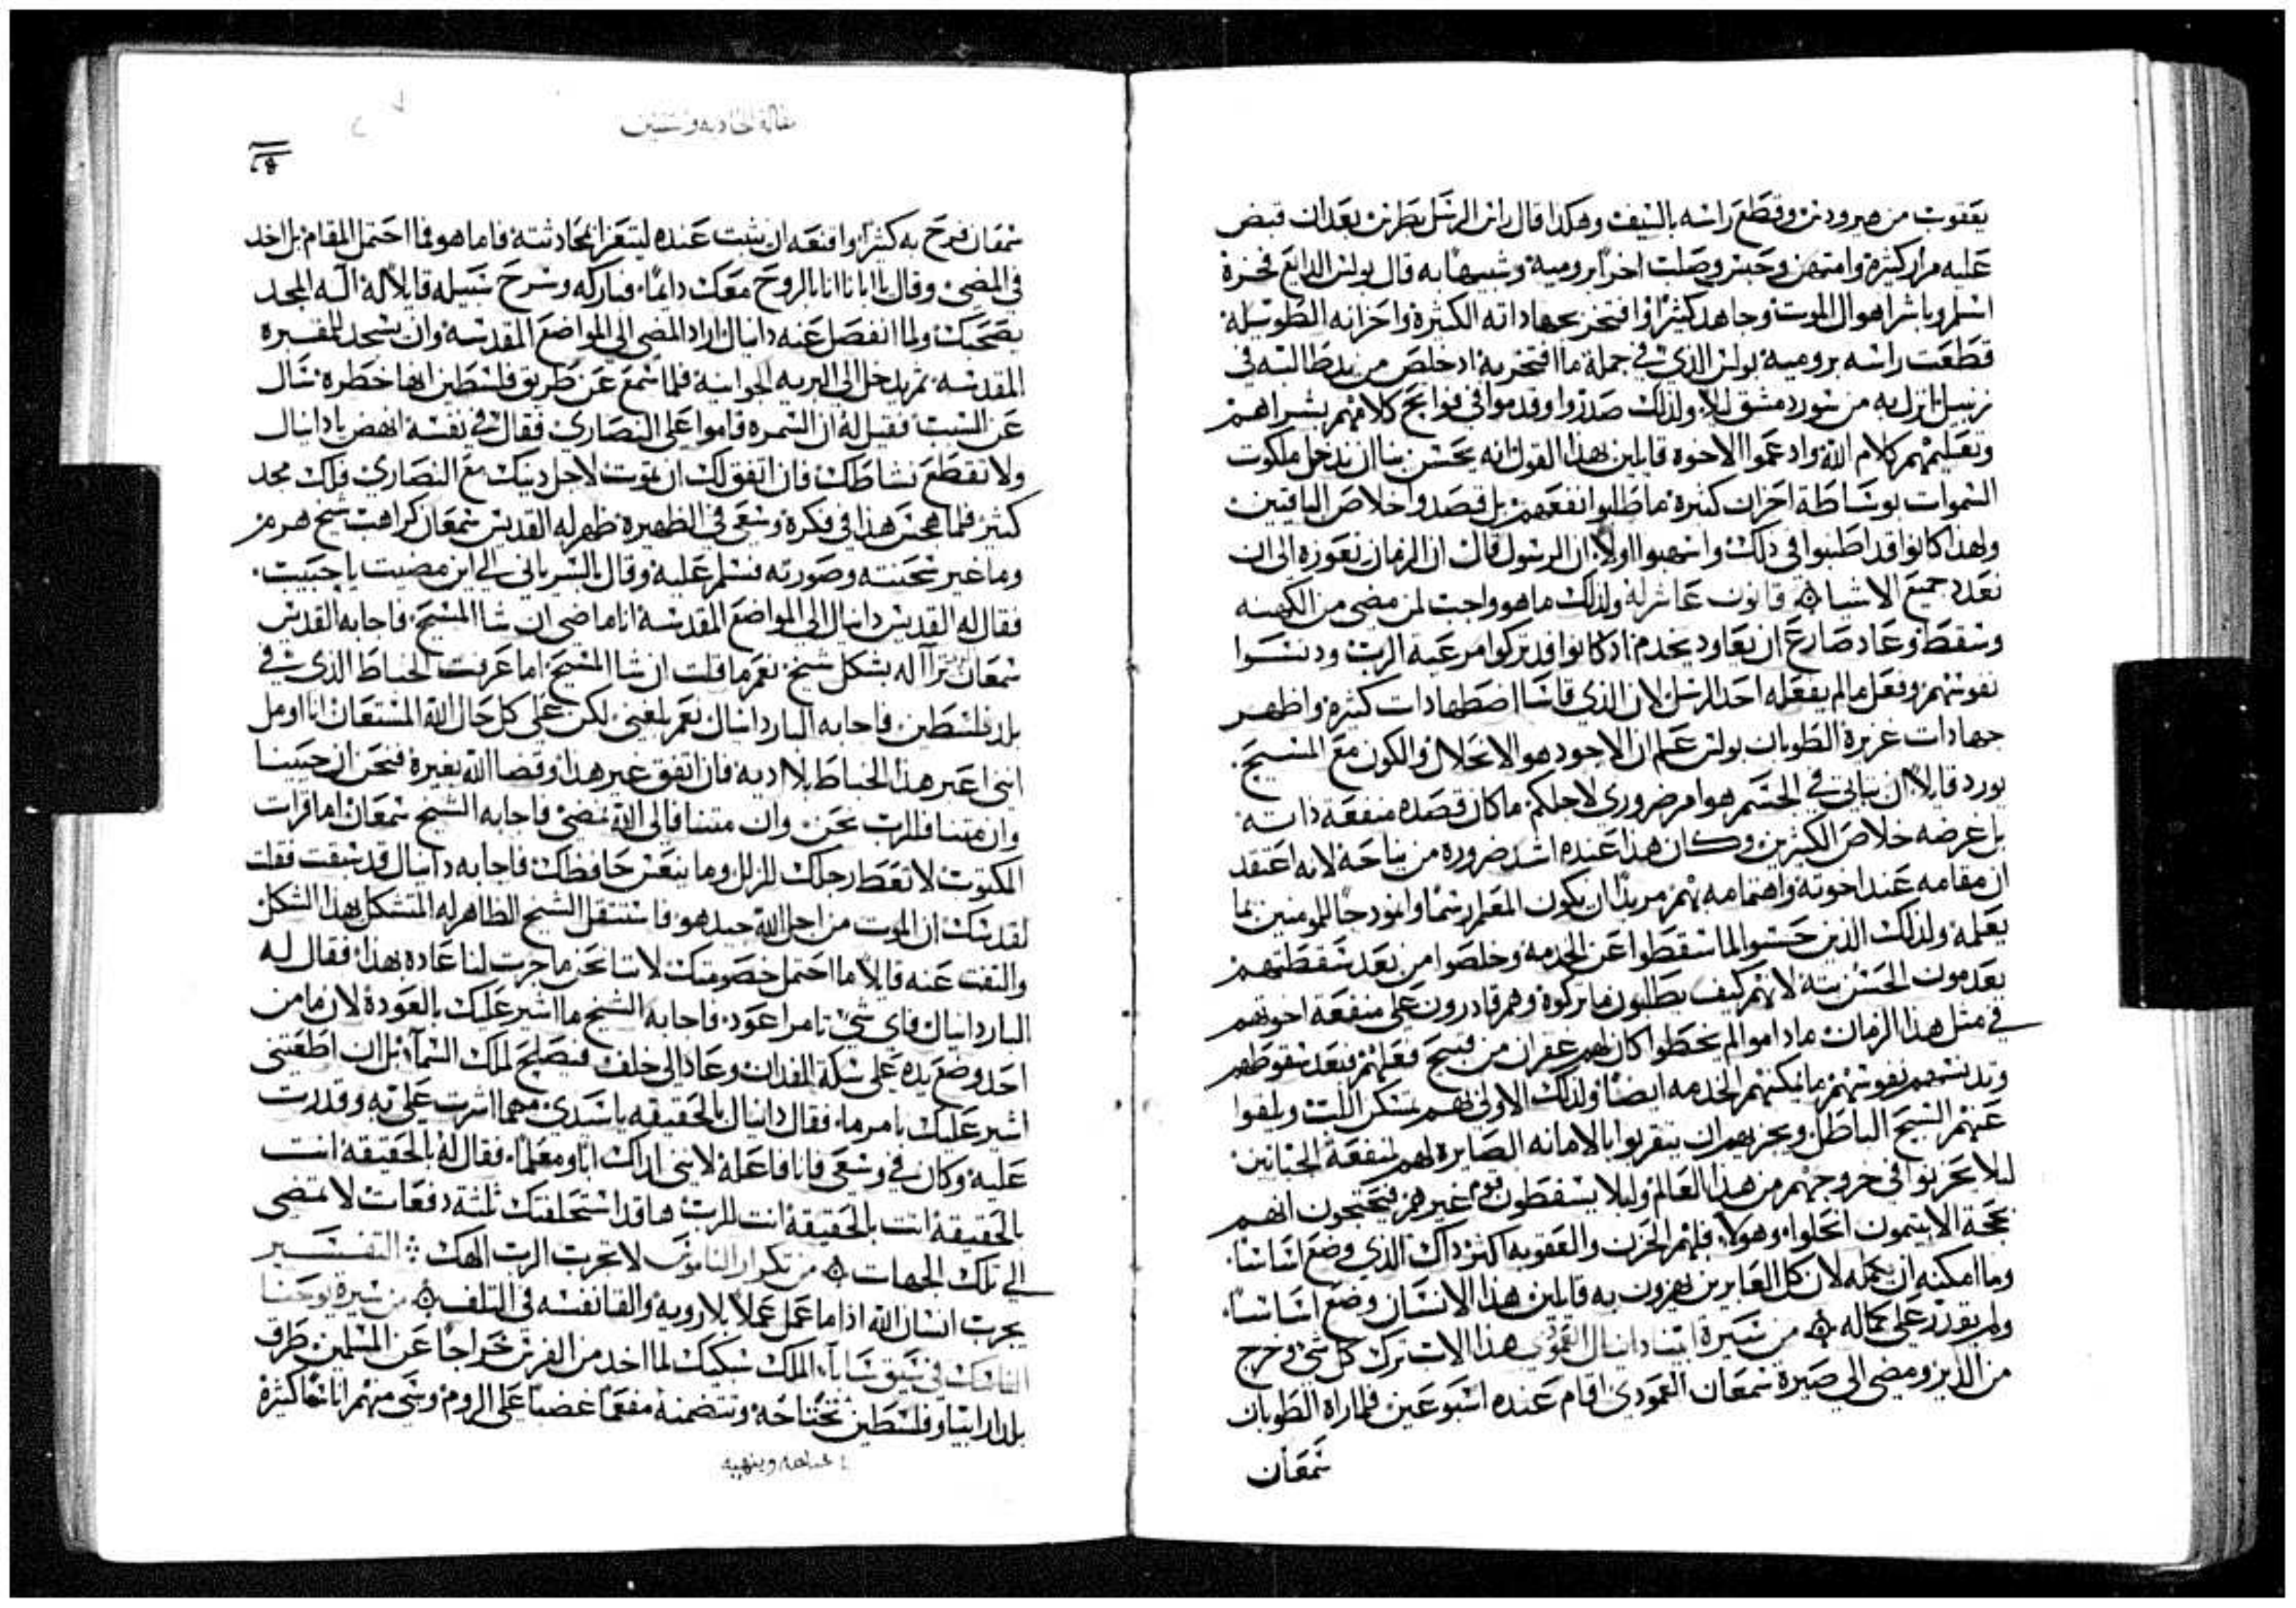 يعقوب من هيرودس وقطع راسه بالسيف وهكذا قال راس الرسل بطرس بعد ان قبض
عليه مرار كثيرة وامتهن وحبس وصلب اخرًا برومية وشبيهًا به قال بولس الدايع فخرة
اسلم وباشر اهوال الموت وجاهد كثيرًا وافتخر بجهاداته الكثيرة واحزانه الطويلة
قطعت راسه برومية بولس الذي في جملة ما افتخر به اد خلص من يد طالبيه في
زنبيل انزل به من سور دمشق ليلا ولذلك صدروا وقدموا في فواتح كلامهم بشراهم
وتعليمهم كلام الله واد عموا الاخوه قايلين بهذا القول انه يحسن بنا ان ندخل ملكوت
السموات بوساطة احزان كثيرة ما طلبوا نفعهم بل قصدوا خلاص الباقيين
ولهذا كانوا قد اطنبوا في ذلك واسهبوا اولا ان الرسول قال ان الزمان يعوزه الى ان
نعدد جميع الاشيا قانون عاشر له ولذلك ما هو واجب لمن مضى من الكهنه
وسقط وعاد صارع ان يعاود يخدم اد كانوا قد تركوا مرعية الرب ودنسوا
نفوسهم وفعل ما لم يفعله احد الرسل لان الذي قاسا اضطهادات كثيرة واظهر
جهادات غزيرة الطوبان بولس علم ان الاجود هو الانحلال والكون مع المسيح
يورد قايلًا ان ثباتي في الجسم هو امر ضروري لاجلكم ما كان قصده منفعة ذاته
بل غرضه خلاص الكثيرين وكان هذا عنده اشد ضروره من نياحة لانه اعتقد
ان مقامه عند اخوته واهتمامه بهم مريدًا ان يكون المعلم رسمًا وانمودجًا للمومنين بما
يعلمه ولذلك الذين حبسوا لما سقطوا عن الخدمه وخلصوا من بعد سقطتهم
يعدمون الحسن بتة لانهم كيف يطلبون ما تركوه وهم قادرون على منفعة اخوتهم
في مثل هذا الزمان ما داموا لم يخطوا كان لهم غفران من قبيح فعلهم فبعد سقوطهم
وتدنيسهم نفوسهم ما يمكنهم الخدمه ايضًا ولذلك الاولى بهم
عنهم السبح الباطل ويجزيهم ان يتقربوا بالامانه الصايرة لهم لمنفعة
ليلا يحزنوا في خروجهم من هذا العالم وليلا يسقطون قوم غيرهم فيحتجون انهم
بحجة انحلوا وهولا فلهم الحزن والعقوبه اكثر داك الذي وضع اساسًا
وما امكنه ان يكمله لان كل العابرين يهزون به قايلين هذا الانسان وضع اساسًا
ولم يقدر على كماله من سيرة ابينا دانيال العمودي هذا الاب ترك كل شي وخرج
من الدير ومضى الى صيرة سمعان العمودي اقام عنده اسبوعين فلما راه الطوبان
سمعان
مقالة الحاديه وستين
سمعان فرح به كثيرًا واقنعه ان يثبت عنده ليتعزا بمحادثته فاما هو فما احتمل المقام بل اخد
في المضي وقال يا ابانا انا بالروح معك دايمًا فباركه وسرح سبيله قايلًا له اله المجد
يصحبك ولما انفصل عنه دانيال اراد المضى الى المواضع المقدسه وان يسجد للمقبره
المقدسه ثم يدخل الى البريه الجوانية فلما سمع عن طريق فلسطين انها خطرة سال
عن السبب فقيل له ان السمره قاموا على النصارى فقال في نفسه انهض يا دانيال
ولا تقطع نشاطك فان اتفق لك ان تموت لاجل دينك مع النصارى فلك مجد
كثير فلما هجس هذا في فكرة وسعى في الظهيرة ظهر له القديس سمعان كراهب شيخ هرم
وما غير سحنته وصورته فسلم عليه وقال بالسرياني الى اين مضيت يا حبيب
فقال له القديس دانيال الى المواضع المقدسة انا ماضي ان شا المسيح فاجابه القديس
سمعان تراآ له بشكل شيخ نعم ما قلت ان شا المسيح اما عرفت الخباط الذي في
بلد فلسطين فاجابه البار دانيال نعم بلغني لكن على كل حال الله المستعان انا اومل
انني اعبر هذا الخباط بلا ادية فان اتفق غير هذا وقضا الله بغيرة فنحن ان حيينا
وان متنا فللرب نحن وان متنا فالى الله نمضي فاجابه الشيخ سمعان اما قرات
المكتوب لا تعط رجلك للزلل وما ينعس حافظك فاجابه دانيال قد سبقت فقلت
لقدسك ان الموت من اجل الله جيد هو فاستثقل الشيخ الظاهر له المتشكل بهذا الشكل
والتفت عنه قايلًا ما احتمل خصومتك لاننا نحن ما جرت لنا عاده بهذا فقال له
البار دانيال فاي شي تامر اعود فاجابه الشيخ ما اشير عليك بالعودة لان ما من
احد وضع يده على سكة الفدان وعاد الى خلف فيصلح لملك السمآء بل ان اطعتني
اشير عليك بامر ما فقال دانيال بالحقيقه يا سيدي مهما اشرت علي به وقدرت
عليه وكان في وسعي فانا فاعله لانني اراك ابًا ومعلمًا فقال له بالحقيقة انت
بالحقيقة انت بالحقيقة انت للرب ها قد استحلفتك ثلثة دفعات لا تمضي
الى تلك الجهات من تكرار الناموس لا تجرب الرب الهك التفسير
يجرب انسان الله اذا ما عمل عملًا بلا رويه والقا نفسه في التلف من سيرة يوحنا
في سيق سابا الملك سكيك لما اخد من الفرس خراجًا عن المسلمين طرق
بلد ارابيا وفلسطين يجتاحه وتتضمنه مفعمًا غضبًا على الروم وسبي منهم اناسًا كثيرة